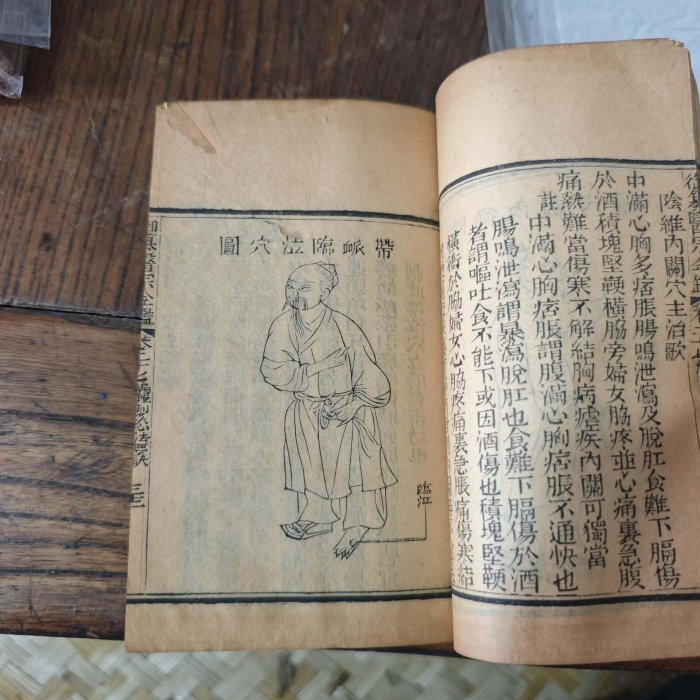 陰維內關穴主治歌
中滿心胸多痞脹腸鳴泄瀉及脫肛食難下膈傷
於酒積塊堅鞕橫脇旁婦女脇疼並心痛裏急腹
痛熱難當傷寒不解結胸病瘧疾內關可獨當
註中滿心胸痞脹謂腹滿心胸痞脹不通快也
腸鳴泄瀉謂暴瀉脫肛也食難下膈傷於酒
者謂嘔吐食不能下或因酒傷也積塊堅鞕
橫衝於脇婦女心脇疼痛裏急脹痛傷寒結
帶衇臨泣穴圖
臨泣
醫宗金鑑 刺灸心法要訣